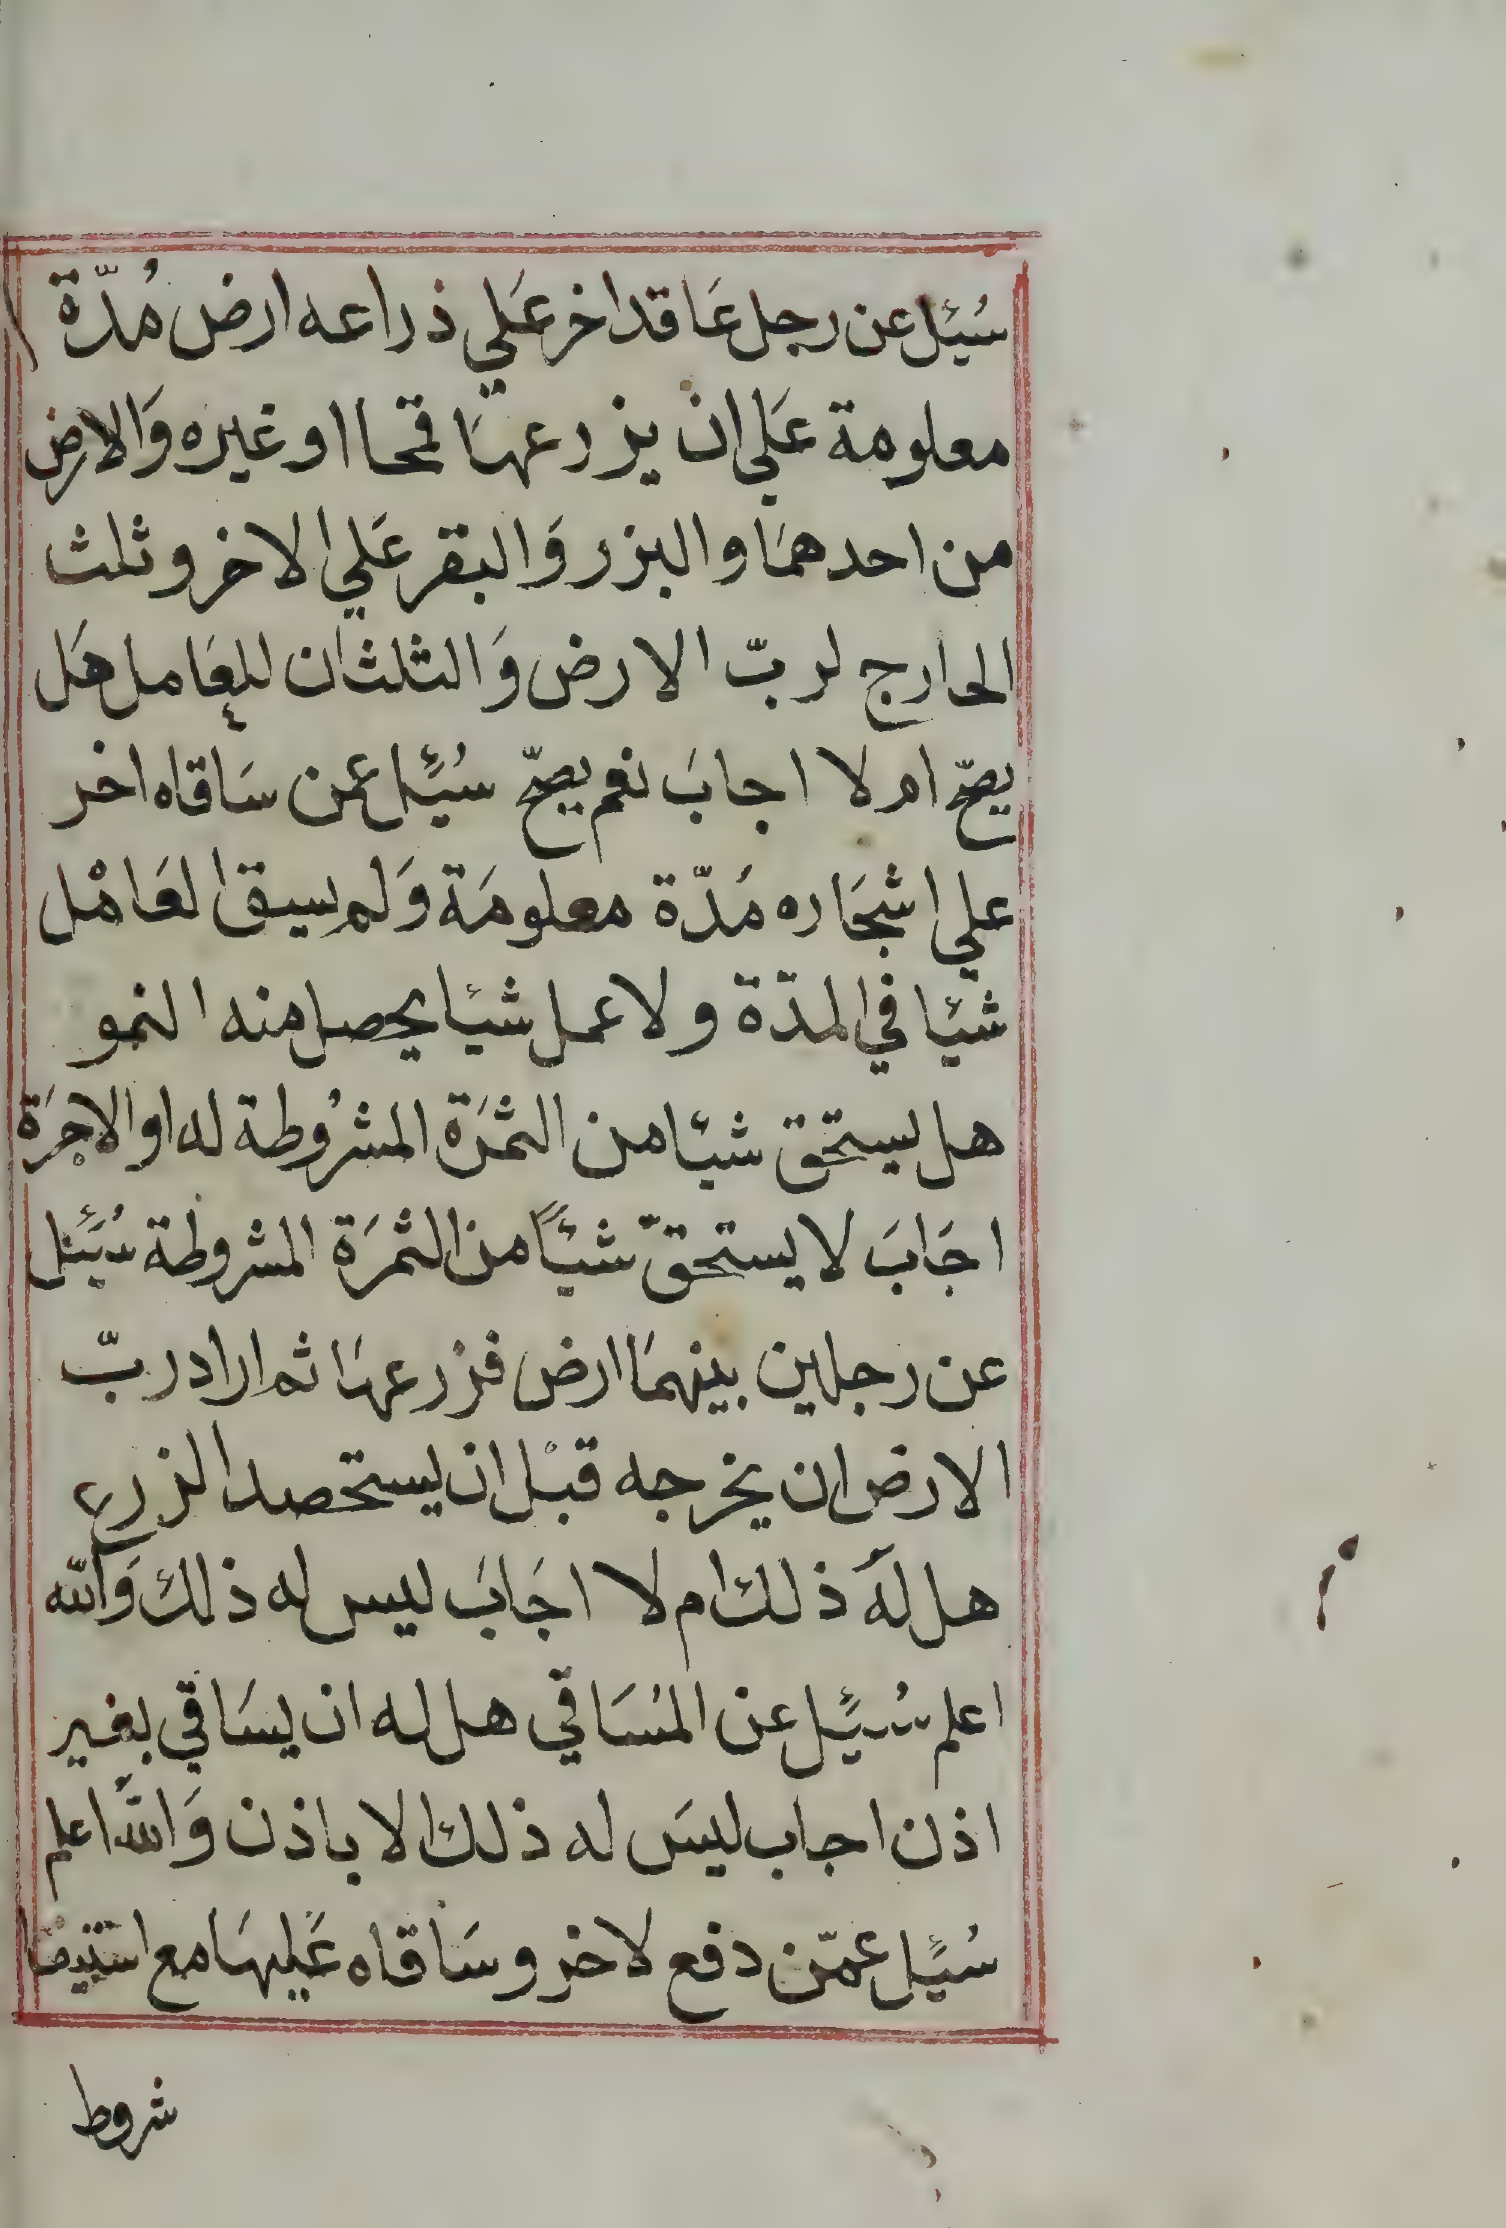 سُئِل عن رجل عَاقد اخر عَلي ذراعه ارض مُدّة
معلومة عَلي ان يزرعهَا قمحا او غيره وَالارض
من احدهمَا والبزر وَالبقر عَلي الاخر وثلث
الحارج لربّ الارض وَالثلثان للعَامل هَل
يصحّ ام لا اجابَ نعم يصحّ سُئِل عمن سَاقاه اخر
علي اشجَاره مُدّة معلومَة وَلم يسق العَامْل
شيئا في المدّة ولا عمل شيئا يحصل منه النمو
هل يستحق شيئا من الثمَرَة المشرُوطة له او الاجرَة
اجَابَ لا يستحقّ شيئًا من الثمَرَة المشروطة سُئِل
عن رجلين بينهمَا ارض فزرعهَا ثم اراد ربّ
الارض ان يخرجه قبْل ان يستحصد الزرع
هل لَه ذلك ام لا اجَابَ ليس له ذلك وَالله
اعلم سُئِل عن المسَاقي هل له ان يسَاقي بغير
اذن اجاب ليسَ له ذلك الا باذن وَاللّه اعلم
سُئِل عمّن دفع لاخر وسَاقاه عَليهَا مع استيفا
شروط